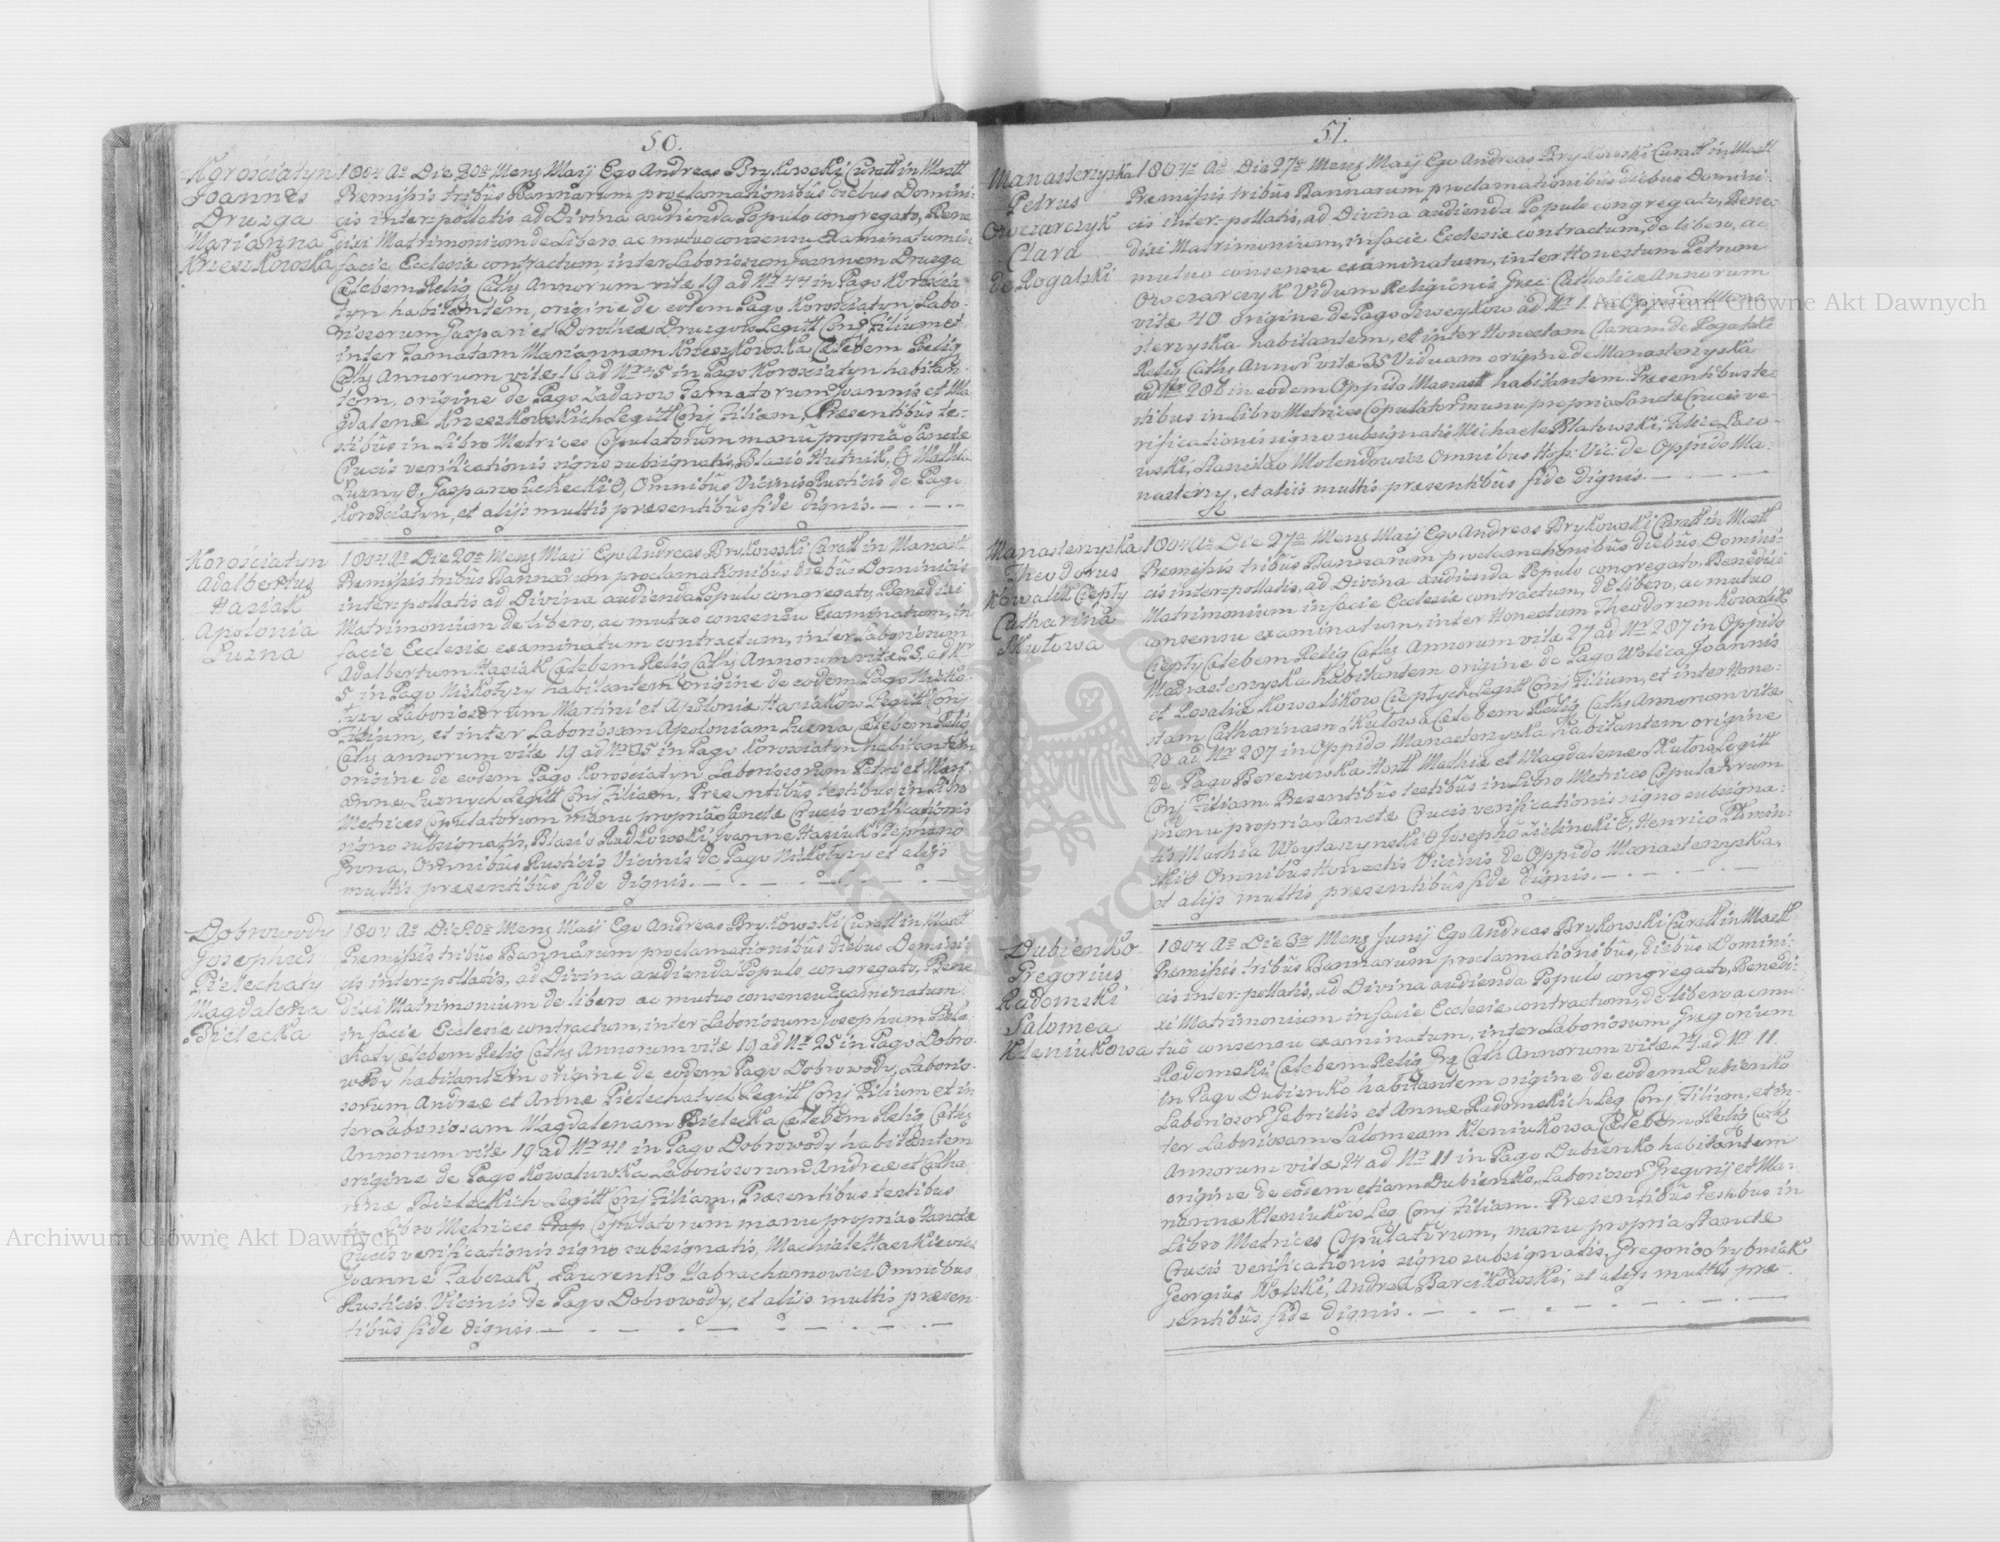 50.
Korościatyn
Joannes
Druzga
Marianna
Krzeszkowska
1804 Ao Die 20a Mens Maij Ego Andreas Brykowski Curatt in Mastt
Premissis tribus Bannarum proclamationibus diebus Domini-
cis inter-pollatis ad Divina audienda Populo congregato, Bene
dixi Matrimonium de Libero ac mutuo consensu Examinatum in
facie Ecclesiæ contractum, inter Laboriosum Joannem Druzga
Cælebem Relig Cathj Annorum vitæ 19 ad Nr 44 in Pago Korościa-
tyn habitantem, origine de eodem Pago Korosciatyn, Labo-
riosorum Gaspari et Dorotheæ Druzgow Legitt Conj Filium et
inter Famatam Mariannam Krzeszkowska Cælebem Relig
Cathj Annorum vitæ 18 ad Nr 45 in Pago Korosciatyn habitan-
tem, origine de Pago Zadarow Famatorum Joannis et Ma
gdalenæ Krzeszkowskich Legitt Conj Filiam, Præsentibus te-
stibus in Libro Metrices Copulatorum manu propria Sanctæ
Crucis verificationis signo subsignatis, Blasio Hutnik,
Luzny, Gasparo Suchecki, Omnibus Vicinis Rusticis de Pago
Korościatyn, et alijs multis præsentibus fide dignis.
Korościatyn
Adalbertus
Hasiak
Apolonia
Luzna
1804 Ao Die 20a Mens Maij Ego Andreas Brykowski Curatt in Manastt
Premissis tribus Bannarum proclamationibus diebus Dominicis
inter-pollatis ad Divina audienda Populo congregato, Benedixi
Matrimonium de libero, ac mutuo consensu Examinatum, in
facie Ecclesiæ examinatum contractum, inter Laboriosum
Adalbertum Hasiak Cælebem Relig Cathj Annorum vitæ 25, ad Nr
5 in Pago Mikołyzy habitantem origine de eodem Pago Miko-
łyzy Laboriosorum Martini et Apoloniæ Hasiakow Legitt Conj
Filium, et inter Laboriosam Apoloniam Luzna Cælebem Relig
Cathj annorum vitæ 19 ad Nr 35 in Pago Korosciatyn habitantem
origine de eodem Pago Korosciatyn Laboriosorum Petri et Mari
annæ Luznych Legitt Conj Filiam, Presentibus testibus in Libro
Metrices Copulatorum manu propria Sanctæ Crucis verificationis
signo subsignatis, Blasio Rudkowski, Joanne Hasiuk, Stephano
Grona, Omnibus Rusticis Vicinis de Pago Mikołyzy et alijs
multis præsentibus fide dignis.
Dobrowody
Josephus
Pielechaty
Magdalena
Bielecka
1804 Ao Die 20a Mens Maij Ego Andreas Brykowski Curatt in Mastt
Premissis tribus Bannarum proclamationibus diebus Domini-
cis inter-pollatis, ad Divina audienda Populo congregato, Bene
dixi Matrimonium de libero ac mutuo consensu Examinatum
in facie Ecclesiæ contractum, inter-Laboriosum Josephum Piele
chaty Cælebem Relig Cathj Annorum vitæ 19 ad Nr 25 in Pago Dobro-
wody habitantem origine de eodem Pago Dobrowody, Laborio-
sorum Andreæ et Annæ Pielechatych Legitt Conj Filium et in
ter Laboriosam Magdalenam Bielecka Cælebem Relig Cathj
Annorum vitæ 19 ad Nr 41 in Pago Dobrowody habitantem
origine de Pago Kowalowka Laboriosorum Andreæ et Catha
rinæ Bieleckich Legitt Conj Filiam, Præsentibus testibus
in Libro Metrices Copulatorum manu propria Sanctæ
Crucis verificationis signo subsignatis, Machiale Haczkiewicz
Joanne Zabczak, Laurenko Zabrachamowicz Omnibus
Rusticis Vicinis de Pago Dobrowody, et alijs multis præsen-
tibus fide dignis
51.
Manasterzyska
Petrus
Owczarczyk
Clara
de Rogalski
1804 Ao Die 27a Mens Maij Ego Andreas Brykowski Curatt in Mastt
Premissis tribus Bannarum proclamationibus diebus Domini-
cis inter-pollatis, ad Divina audienda Populo congregato, Bene-
dixi Matrimonium, in facie Ecclesiæ contractum, de libero, ac
mutuo consensu examinatum, inter Honestum Petrum
Owczarczyk Viduum Religionis Græci Catholicæ Annorum
vitæ 40 origine de Pago Szweykow ad Nr 1 in Oppido Mana
sterzyska habitantem, et inter Honestam Claram de Rogalski
Relig Cathj Annor vitæ 35 Viduam origine de Manasterzyska
ad Nr 286 in eodem Oppido Manastt habitantem. Præsentibus te-
stibus in Libro Metrices Copulator manu propria Sanctæ Crucis ve-
rificationis signo subsignatis Michaele Blatowski, Felice Lazo-
wski, Stanislao Molendowicz Omnibus Hosp: Vic: de Oppido Ma-
nasterzy, et aliis multis præsentibus fide dignis.
Manasterzyska
Theodorus
Kowalik Ciepły
Catharina
Skutowa
1804 Ao Die 27a Mens Maij Ego Andreas Brykowski Curatt in Mastt
Premissis tribus Bannarum proclamationibus diebus Domini-
cis inter-pollatis, ad Divina audienda Populo congregato, Benedixi
Matrimonium in facie Ecclesiæ contractum, de libero, ac mutuo
consensu examinatum, inter Honestum Theodorum Kowalik
Ciepły Cælebem Relig Cathj Annorum vitæ 27 ad Nr 287 in Oppido
Manasterzyska habitantem origine de Pago Wolica Joannis
et Rosaliæ Kowalikow Ciepłych Legitt Conj Filium, et inter Hone-
stam Catharinam Skutowa Cælebem Relig Cathj Annorum vitæ
20 ad Nr 287 in Oppido Manasterzyska habitantem origine
de Pago Berezuwka Hostt Mathiæ et Magdalenæ Skutow Legitt
Conj Filiam. Presentibus testibus in Libro Metrices Copulatorum
manu propria Sanctæ Crucis verificationis signo subsigna-
tis Mathia Woytaszynski, Josepho Zielinski, Henrico
Omnibus Honestis Vicinis de Oppido Manasterzyska,
et alijs multis præsentibus fide dignis.
Dubienko
Gregorius
Radomski
Salomea
Kleniukowa
1804 Ao Die 3a Mens Junij Ego Andreas Brykowski Curatt in Mastt
Premissis tribus Bannarum proclamationibus, diebus Domini-
cis inter-pollatis, ad Divina audienda Populo congregato, Benedi-
xi Matrimonium in facie Ecclesiæ contractum, de libero ac mu-
tuo consensu examinatum, inter Laboriosum Gregorium
Radomski Cælebem Relig Gr Cath Annorum vitæ 24 ad Nr 11
in Pago Dubienko habitantem origine de eodem Dubienko
Laborior Gabrielis et Annæ Radomskich Leg Conj Filium, et in-
ter Laboriosam Salomeam Kleniukowa Cælebem Relig Cathj
Annorum vitæ 24 ad Nr 11 in Pago Dubienko habitantem
origine de eodem etiam Dubienko, Laborior Gregorij et Ma-
riannæ Kleniukow Leg Conj Filiam. Præsentibus testibus in
Libro Metrices Copulatorum, manu propria Sanctæ
Crucis verificationis signo subsignatis, Gregorio Srybniak
Georgius Wolski, Andrea Barcikowski, et alijs multis præ-
sentibus fide dignis.
Archiwum Główne Akt Dawnych
Archiwum Główne Akt Dawnych